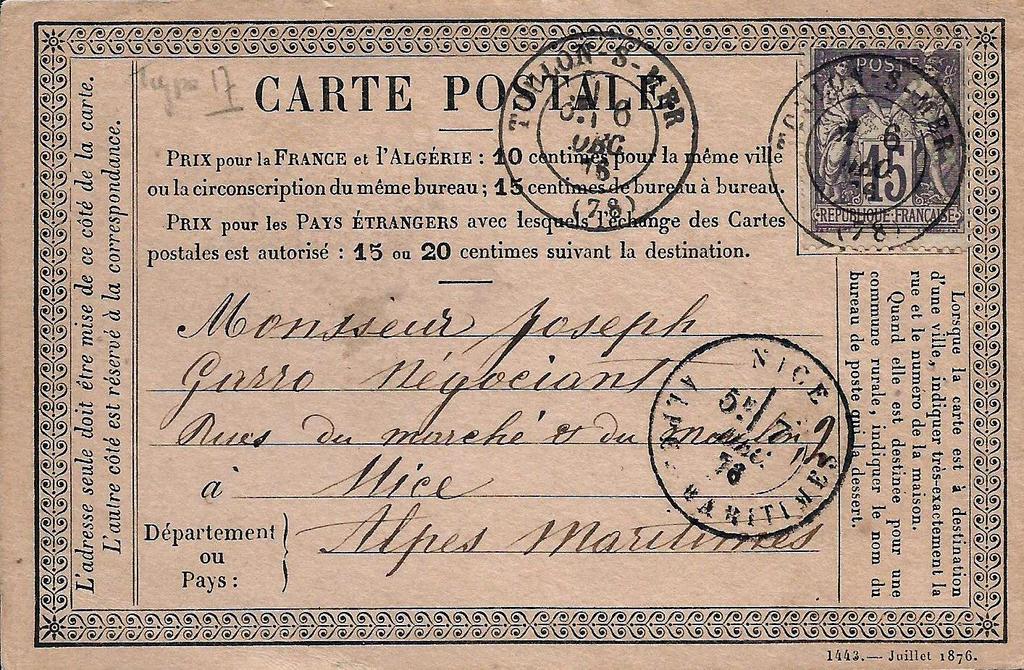 Type 17
CARTE POSTALE
PRIX pour la FRANCE et l'ALGÉRIE : 10 centimes pour la même ville
ou la circonscription du même bureau ; 15 centimes de bureau à bureau.
PRIX pour les PAYS ÉTRANGERS avec lesquels l'échange des Cartes
postales est autorisé : 15 ou 20 centimes suivant la destination.
TOULON-S-MER
6
76
(78)
POSTE
15
REPUBLIQUE FRANCAISE
TOULON-S-MER
6
(78)
L'adresse seule doit être mise de ce côté de la carte.
L'autre côté est réservé à la correspondance.
Monsieur Joseph
Garro Négociant
Rues du marché & du moulin 2
à Nice
Alpes Maritimes
Département
ou
Pays :
NICE
5E 7
76
ALPES-MARITIMES
Lorsque la carte est à destination
d'une ville, indiquer très-exactement la
rue et le numéro de la maison.
Quand elle est destinée pour une
commune rurale, indiquer le nom du
bureau de poste qui la dessert.
1443.— Juillet 1876.